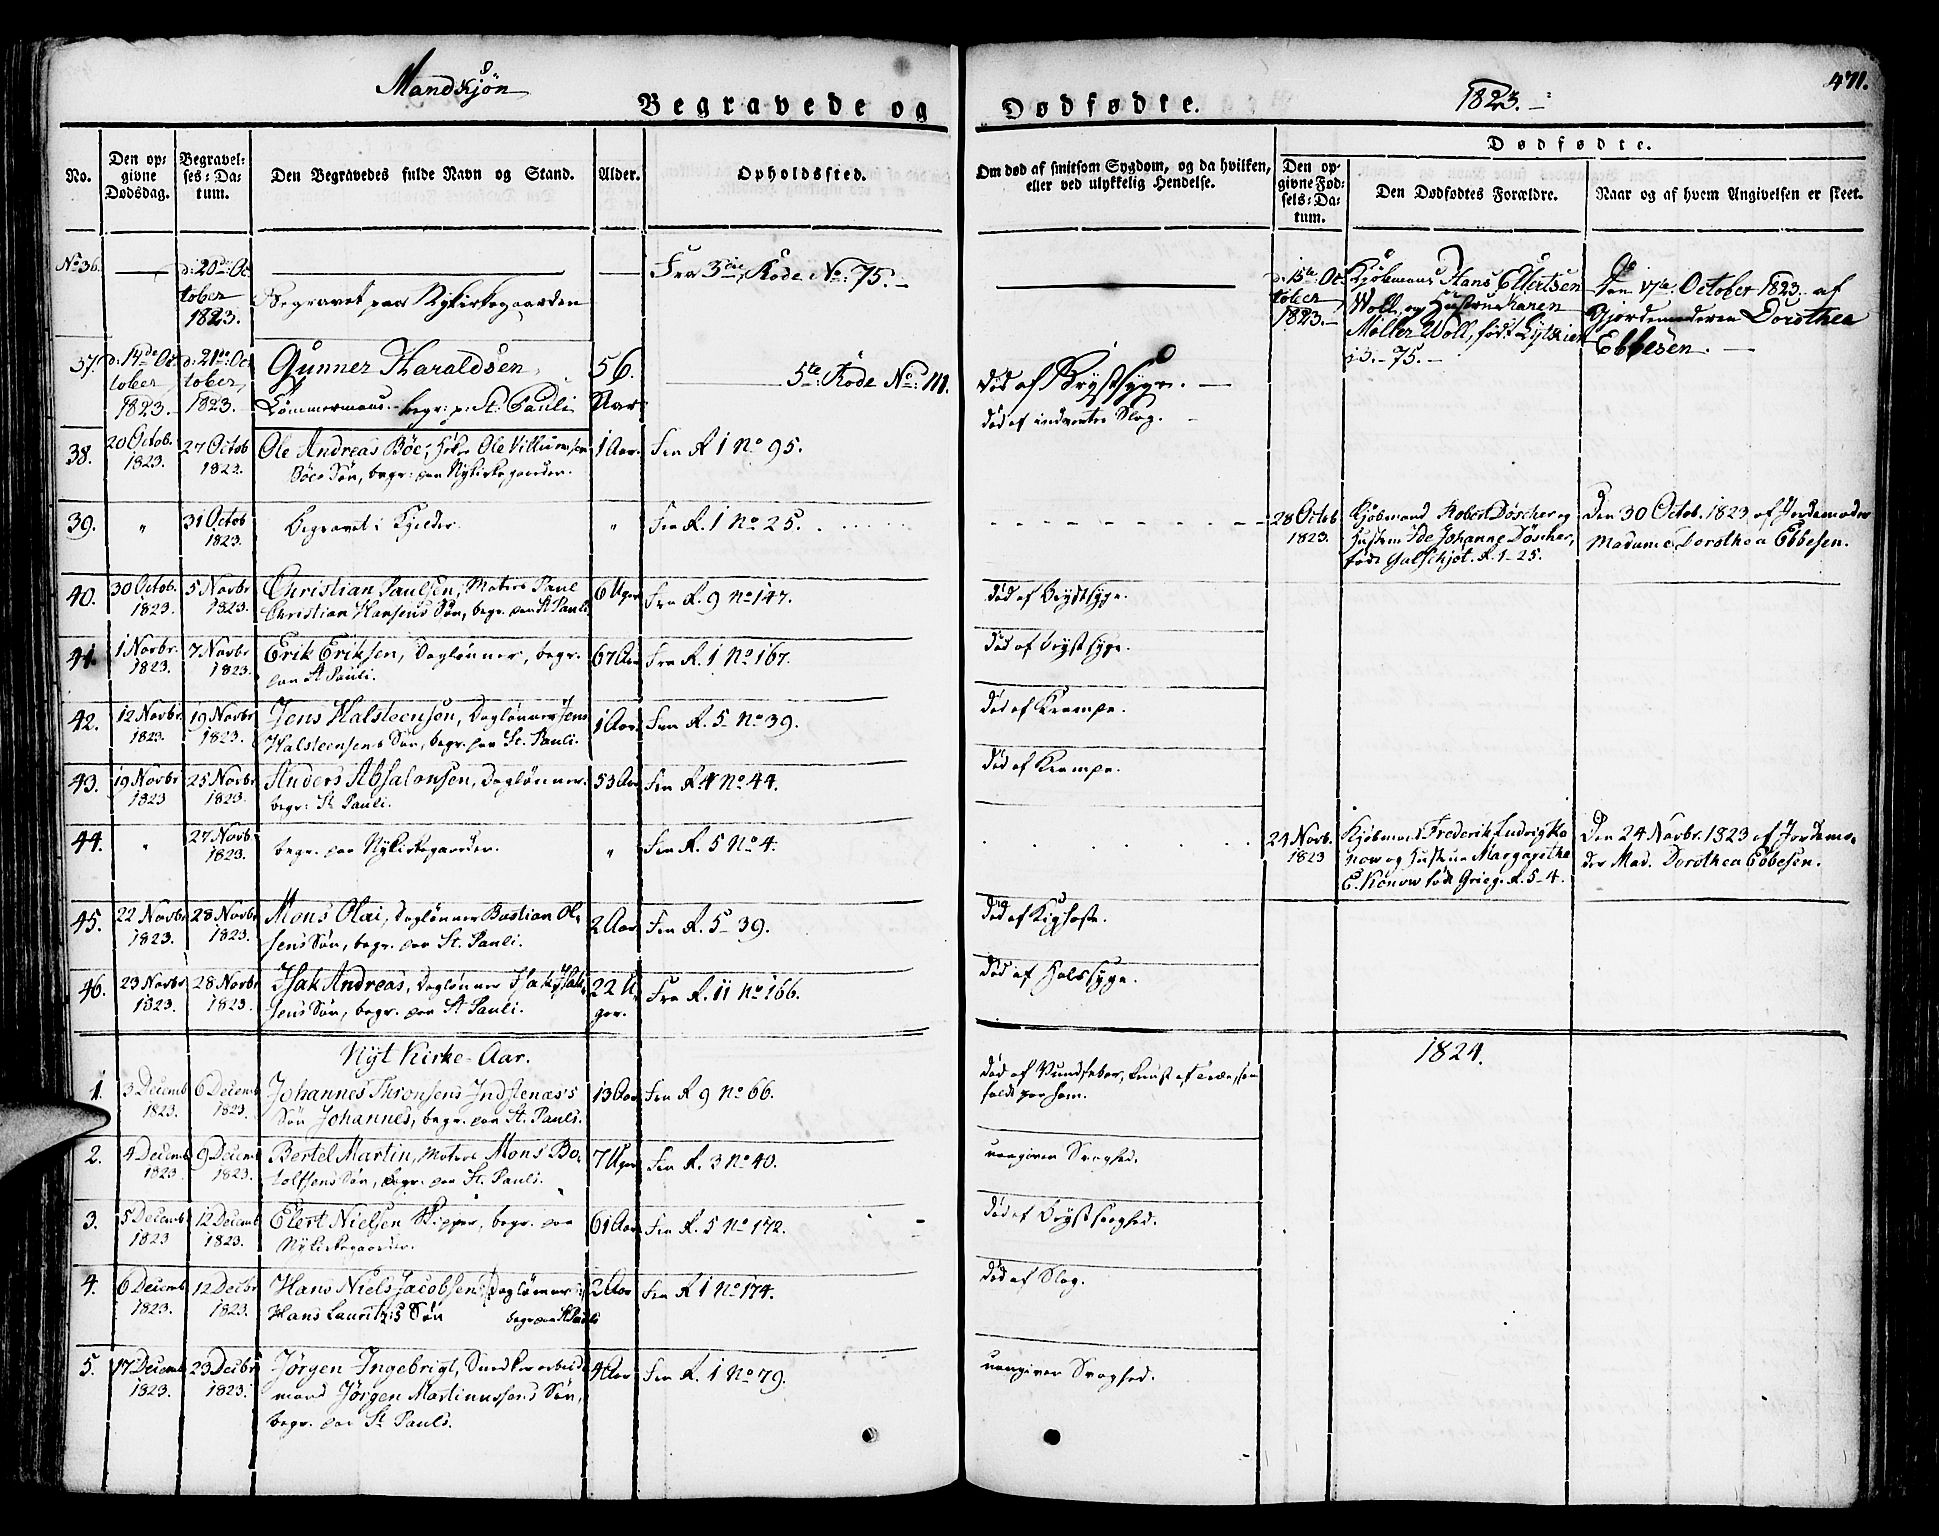 Mandkjøn
Begravede og Dødfødte.
1823.
471.
No.
Den opgivne Dødsdag.
Begravelses-Datum.
Den Begravedes fulde Navn og Stand.
Alder.
Opholdssted.
Om død af smitsom Sygdom, og da hvilken, eller ved ulykkelig Hendelse.
Dødfødte.
Den opgivne Fødsels-Datum.
Den Dødfødtes Forældre.
Naar og af hvem Angivelsen er skeet.
No 36. d: 20de October 1823. Begravet paa Nykirkegaarden
Fra 3die Rode No: 75.
d: 15te October 1823.
Kjøbmand Hans Ellertsen
Woll, og Hustrue Karen
Møller Woll, født
i 3. - 75.
Den 17de October 1823. af
Gjordemoderen Dorothea
Ebbesen.
37. d: 14de October 1823. d: 21de October 1823. Gunner Haraldsen,
Tømmermand. begr: p: St: Pauli
56 Aar
5te Rode No: 111.
død af Brystsyge.
død af indvortes Slag.
38. 20 Octob. 1823. 27 Octob 1823. Ole Andreas Böe, Ole Villumsen
Böes Søn, begr: paa Nykirkegaarden.
1 Aar.
Fra R 1 No 95.
39. " 31 Octob 1823. Begravet i Kjelder.
"
Fra R. 1 No 25.
28 Octob 1823.
Kjøbmand Robert Döscher og
Hustru Ide Johanne Döscher,
født R. 1-25.
Den 30 Octob. 1823 af Jordemoder
Madame Dorothea Ebbesen.
40. 30 Octob. 1823. 5 Novbr 1823. Christian Paulsen, Matros Paul
Christian Hansens Søn, begr. paa St Pauli
6 Uger
Fra R. 9 No 147.
død af Brystsyge.
41. 1 Novbr. 1823. 7 Novbr 1823. Erik Eriksen, Daglønner, begr.
paa St Pauli.
67 Aar
Fra R. 1 No 167.
død af Brystsyge.
42. 12 Novbr. 1823. 19 Novbr 1823. Jens Halsteensen, Daglønner Jens
Halsteensens Søn, begr. paa St. Pauli.
1 Aar.
Fra R. 5 No 39.
død af Krampe.
43. 19 Novbr 1823 25 Novbr 1823. Anders Absalonsen, Daglønner.
begr: St. Pauli.
53 Aar
Fra R. 4 No 44.
død af Krampe.
44. " 27 Novb 1823. begr. paa Nykirkegaarden.
"
Fra R. 5 No 4.
24 Novb. 1823
Kjøbmand Frederik Ludvig Ko
now og Hustrue Margaretha
E. Konow født Grieg. R. 5-4.
Den 24 Novbr. 1823 af Jordemo-
der Mad. Dorothea Ebbesen.
45. 22 Novbr 1823. 28 Novbr 1823. Mons Olai, Daglønner Bastian Ol-
sens Søn, begr. paa St. Pauli.
2 Aar
Fra R. 5 - 39.
død af Kighoste.
46. 23 Novbr 1823. 28 Novbr 1823. Isak Andreas, Daglønner Isak Isak-
sens Søn, begr. paa St Pauli.
22 Uger.
Fra R. 11 No 166.
død af Halssyge.
Nyt Kirke-Aar.
1824.
1. 3 Decemb 1823. 6 Decemb 1823. Johannes Thronsens
Søn Johannes, begr. paa St. Pauls.
13 Aar
Fra R 9 No 66.
død af
2. 4 Decemb 1823. 9 Decemb 1823. Bertel Martin, Matros Mons Bo-
tolfsens Søn, begr. paa St. Pauls.
7 Uger
Fra R. 3 No 40.
uangiven Svaghed.
3. 5 Decemb 1823 12 Decemb 1823. Elert Nielsen Skipper, begr. paa
Nykirkegaarden.
61 Aar
Fra R. 5 No 172.
død af Brystsvaghed.
4. 6 Decemb 1823. 12 Decbr 1823. Hans Niels Jacobsen, Daglønner
Hans Lauritz's Søn begr paa St Pauli
2 Aar
Fra R 1 No 174.
død af Slag.
5. 17 Decemb 1823. 23 Decbr 1823. Jørgen Ingebrigt, Snedkerarbeids
mand Jørgen Martinussens Søn,
begr. paa St. Pauls.
4 Aar
Fra R. 1 No 79.
uangiven Svaghed.